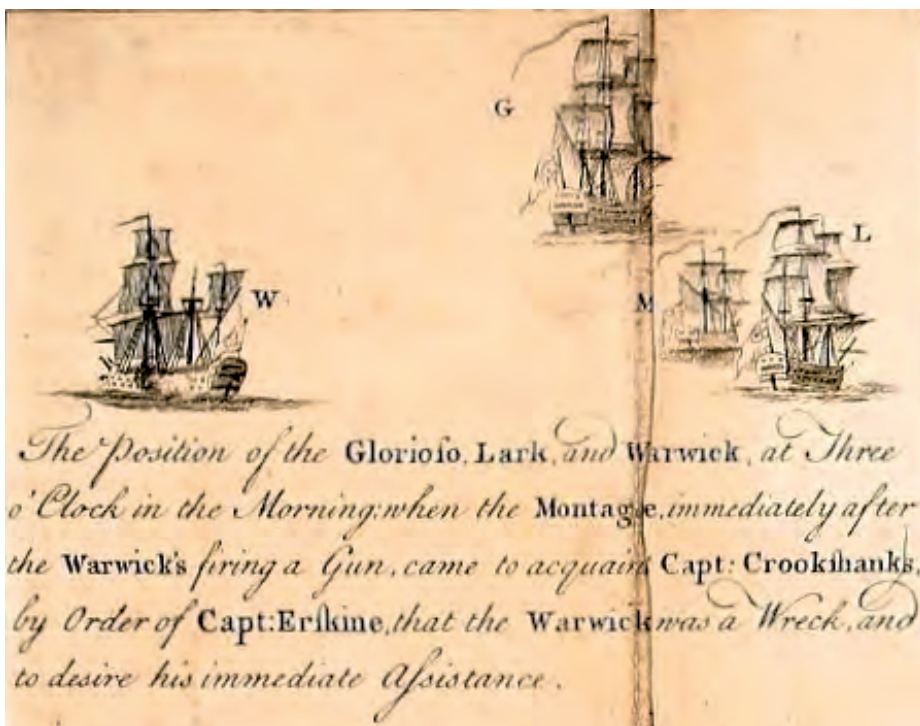 G
L
W
M
The Position of the Glorioſo, Lark, and Warwick, at Three
o'Clock in the Morning: when the Montague, immediately after
the Warwick's firing a Gun, came to acquaint Capt: Crookſhanks,
by Order of Capt: Erſkine, that the Warwick was a Wreck, and
to desire his immediate Aſsistance.